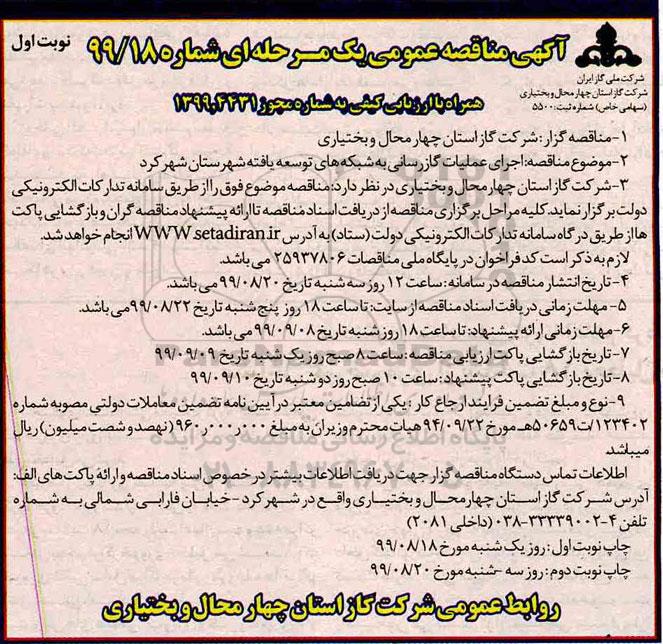 نوبت اول
آگهی مناقصه عمومی یک مرحله ای شماره ۹۹/۱۸
شرکت ملی گاز ایران
شرکت گاز استان چهارمحال و بختیاری
(سهامی خاص) شماره ثبت: ۵۵۰۰
همراه با ارزیابی کیفی به شماره مجوز ۱۳۹۹,۴۴۳۱
۱-مناقصه گزار: شرکت گاز استان چهارمحال و بختیاری
۲-موضوع مناقصه: اجرای عملیات گازرسانی به شبکه های توسعه یافته شهرستان شهرکرد
۳-شرکت گاز استان چهارمحال و بختیاری در نظر دارد: مناقصه موضوع فوق را از طریق سامانه تدارکات الکترونیکی
دولت برگزار نماید. کلیه مراحل برگزاری مناقصه از دریافت اسناد مناقصه تا ارائه پیشنهاد مناقصه گران و بازگشایی پاکت
ها از طریق درگاه سامانه تدارکات الکترونیکی دولت (ستاد) به آدرس WWW.setadiran.ir انجام خواهد شد.
لازم به ذکر است کد فراخوان در پایگاه ملی مناقصات ۲۵۹۳۷۸۰۶ می باشد.
۴-تاریخ انتشار مناقصه در سامانه: ساعت ۱۲ روز سه شنبه تاریخ ۹۹/۰۸/۲۰ می باشد.
۵- مهلت زمانی دریافت اسناد مناقصه از سایت: تا ساعت ۱۸ روز پنج شنبه تاریخ ۹۹/۰۸/۲۲ می باشد.
۶-مهلت زمانی ارائه پیشنهاد: تا ساعت ۱۸ روز شنبه تاریخ ۹۹/۰۹/۰۸ می باشد.
۷-تاریخ بازگشایی پاکت ارزیابی مناقصه: ساعت ۸ صبح روز یک شنبه تاریخ ۹۹/۰۹/۰۹
۸-تاریخ بازگشایی پاکت پیشنهاد: ساعت ۱۰ صبح روز دو شنبه تاریخ ۹۹/۰۹/۱۰
۹-نوع و مبلغ تضمین فرایند ارجاع کار: یکی از تضامین معتبر در آیین نامه تضمین معاملات دولتی مصوبه شماره
۱۲۳۴۰۲/ت۵۰۶۵۹هـ مورخ ۹۴/۰۹/۲۲ هیات محترم وزیران به مبلغ ۹۶۰,۰۰۰,۰۰۰ (نهصد و شصت میلیون) ریال
میباشد
اطلاعات تماس دستگاه مناقصه گزار جهت دریافت اطلاعات بیشتر در خصوص اسناد مناقصه و ارائه پاکت های الف:
آدرس شرکت گاز استان چهارمحال و بختیاری واقع در شهرکرد - خیابان فارابی شمالی به شماره
تلفن ۴-۳۳۳۳۹۰۰۲-۰۳۸ (داخلی ۲۰۸۱)
چاپ نوبت اول: روز یک شنبه مورخ ۹۹/۰۸/۱۸
چاپ نوبت دوم: روز سه -شنبه مورخ ۹۹/۰۸/۲۰
روابط عمومی شرکت گاز استان چهارمحال و بختیاری
پایگاه اطلاع رسانی مناقصه و مزایده